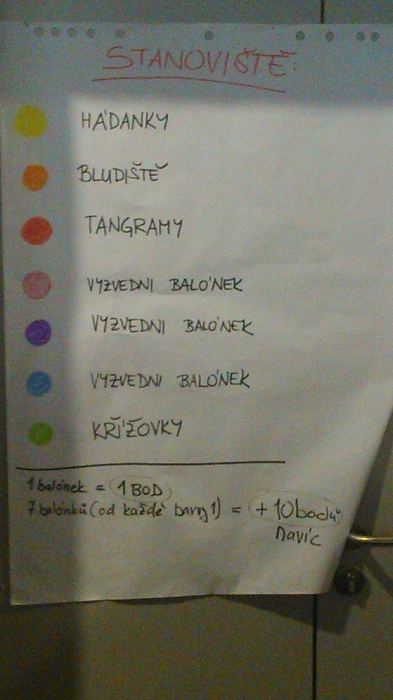 STANOVIŠTĚ:
HÁDANKY
BLUDIŠTĚ
TANGRAMY
VYZVEDNI BALÓNEK
VYZVEDNI BALÓNEK
VYZVEDNI BALÓNEK
KŘÍŽOVKY
1 balónek = 1 BOD
7 balónků (od každé barvy 1) = +10 bodů
navíc